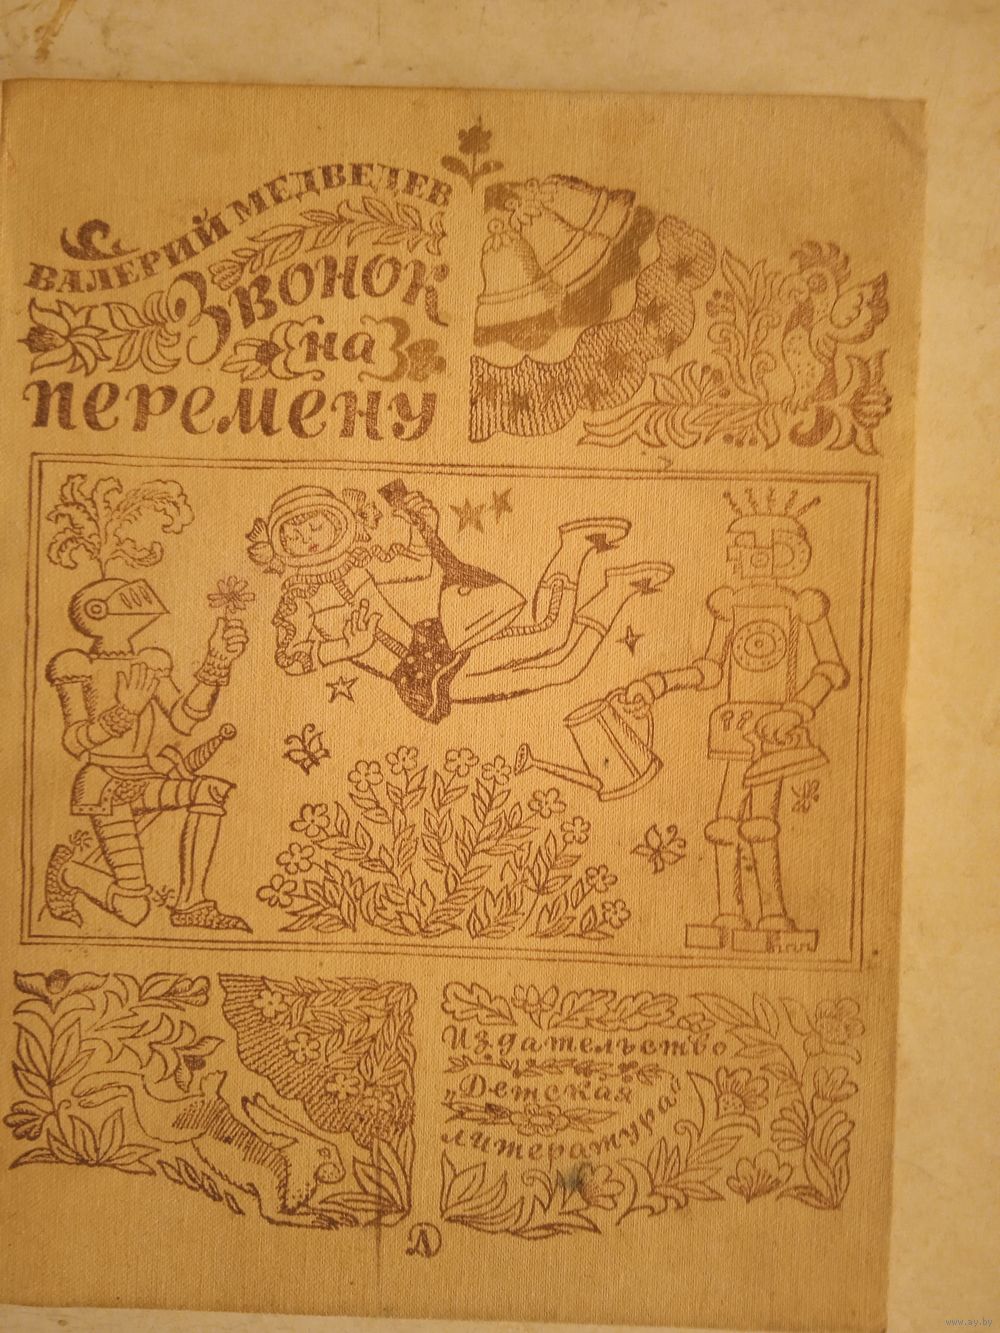 ВАЛЕРИЙ МЕДВЕДЕВ
Звонок
на
перемену
Издательство
„Детская
литература“
www.ay.by